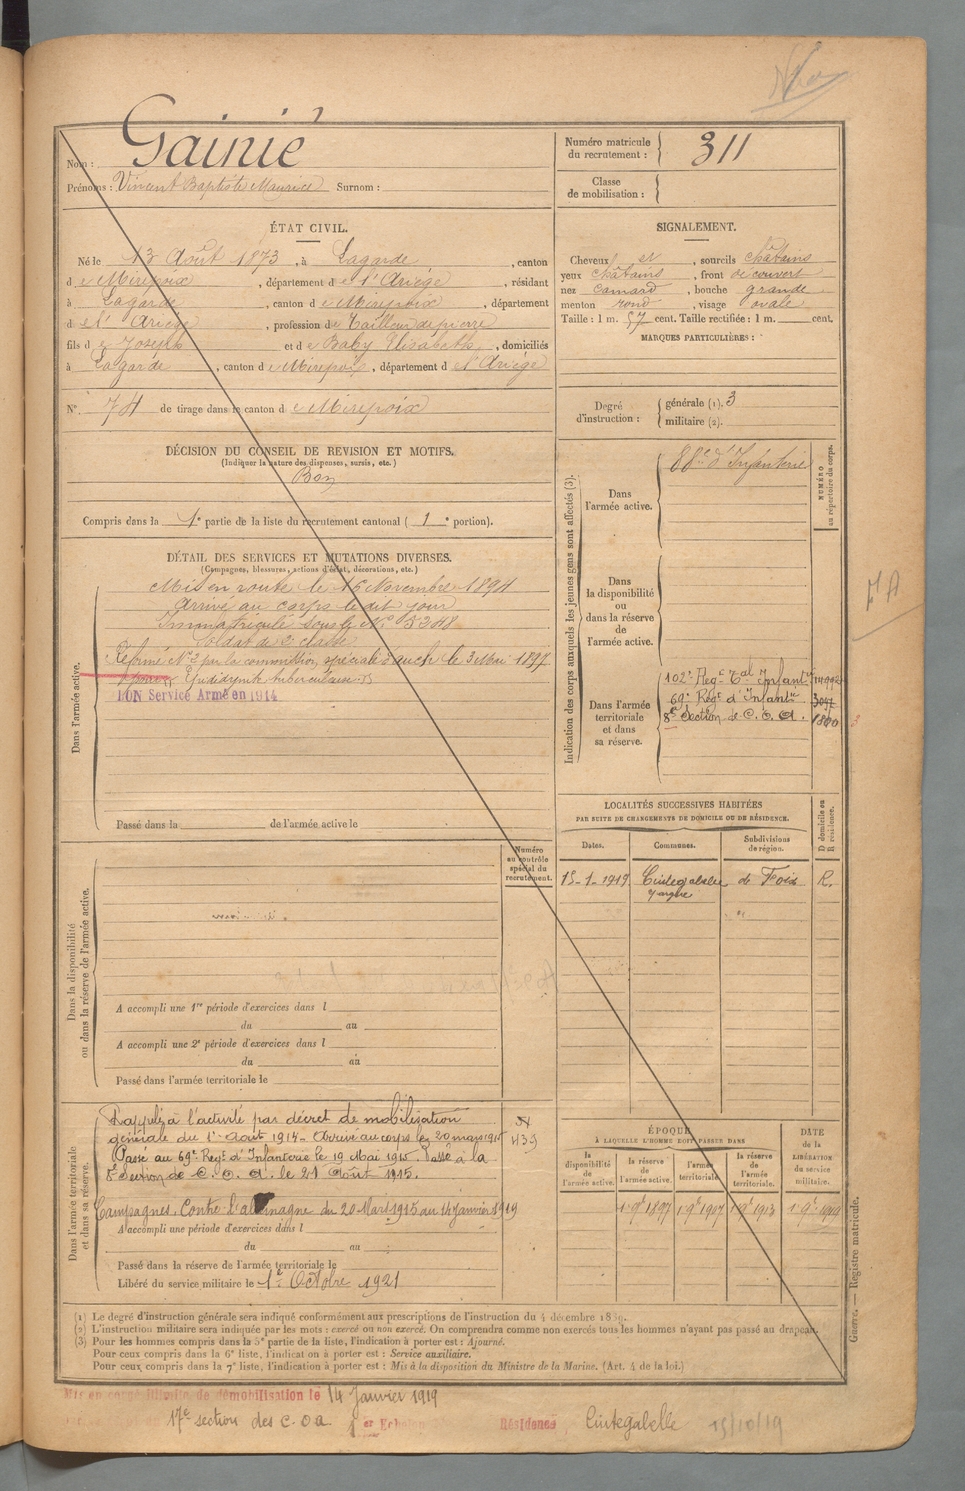 Nom : Gainié
Prénoms : Vincent Baptiste Maurice Surnom :
Numéro matricule du recrutement : 311
Classe de mobilisation :
ÉTAT CIVIL.
Né le 13 Août 1873, à Lagarde, canton
de Mirepoix, département de l'Ariège, résidant
à Lagarde, canton de Mirepoix, département
de l'Ariège, profession de Tailleur de pierre
fils de Joseph et de Baby Elisabeth, domiciliés
à Lagarde, canton de Mirepoix, département de l'Ariège
N° 74 de tirage dans le canton de Mirepoix
SIGNALEMENT.
Cheveux et, sourcils châtains
yeux châtains, front découvert
nez camard, bouche grande
menton rond, visage ovale
Taille : 1 m. 57 cent. Taille rectifiée : 1 m. cent.
MARQUES PARTICULIÈRES :
Degré d'instruction : générale (1). 3
militaire (2).
DÉCISION DU CONSEIL DE REVISION ET MOTIFS.
(Indiquer la nature des dispenses, sursis, etc.)
Bon
Compris dans la 1e partie de la liste du recrutement cantonal ( 1e portion).
DÉTAIL DES SERVICES ET MUTATIONS DIVERSES.
(Campagnes, blessures, actions d'éclat, décorations, etc.)
Dans l'armée active.
Mis en route le 16 Novembre 1894
Arrivé au corps le dit jour
Immatriculé sous le N° 5348
Soldat de 2e classe
Réformé N° 2 par la commission spéciale d'auch le 3 Mai 1897
Epididymite tuberculeuse
BON Service Armé en 1914
Passé dans la de l'armée active le
Indication des corps auxquels les jeunes gens sont affectés (3).
NUMÉRO au répertoire du corps.
Dans l'armée active.
88e d'Infanterie
Dans la disponibilité ou dans la réserve de l'armée active.
Dans l'armée territoriale et dans sa réserve.
102e Regt Tal Infantie
69e Regt d'Infantie
8e Section de C. O. A. 1800
LOCALITÉS SUCCESSIVES HABITÉES
PAR SUITE DE CHANGEMENTS DE DOMICILE OU DE RÉSIDENCE.
Dates. Communes. Subdivisions de région. D domicile ou R résidence.
15-1-1919 Cintegabelle de Foix R.
Dans la disponibilité ou dans la réserve de l'armée active.
Numéro au contrôle spécial du recrutement.
A accompli une 1re période d'exercices dans l
du au
A accompli une 2e période d'exercices dans l
du au
Passé dans l'armée territoriale le
Dans l'armée territoriale et dans sa réserve.
Rappelé à l'activité par décret de mobilisation
générale du 1er Août 1914 - Arrivé au corps le 20 mars 1915
Passé au 69e Regt d'Infanterie le 19 Mai 1915. Passé à la
8e Section de C. O. A. le 21 Août 1915.
439
Campagnes. Contre l'allemagne du 20 Mars 1915 au 14 janvier 1919
A accompli une période d'exercices dans l
du au
Passé dans la réserve de l'armée territoriale le
Libéré du service militaire le 1er Octobre 1921
ÉPOQUE
À LAQUELLE L'HOMME DOIT PASSER DANS
la disponibilité de l'armée active. la réserve de l'armée active. l'armée territoriale. la réserve de l'armée territoriale.
DATE de la LIBÉRATION du service militaire.
1 9e 1897 1 9e 1907 1 9e 1913 1 9e 1919
(1) Le degré d'instruction générale sera indiqué conformément aux prescriptions de l'instruction du 4 décembre 1889.
(2) L'instruction militaire sera indiquée par les mots : exercé ou non exercé. On comprendra comme non exercés tous les hommes n'ayant pas passé au drapeau.
(3) Pour les hommes compris dans la 5e partie de la liste, l'indication à porter est : Ajourné.
Pour ceux compris dans la 6e liste, l'indication à porter est : Service auxiliaire.
Pour ceux compris dans la 7e liste, l'indication à porter est : Mis à la disposition du Ministre de la Marine. (Art. 4 de la loi.)
Guerre. — Registre matricule.
Mis en congé illimité de démobilisation le 14 Janvier 1919
17e section des C.O.A. 1er Echelon Résidence Cintegabelle 15/10/19